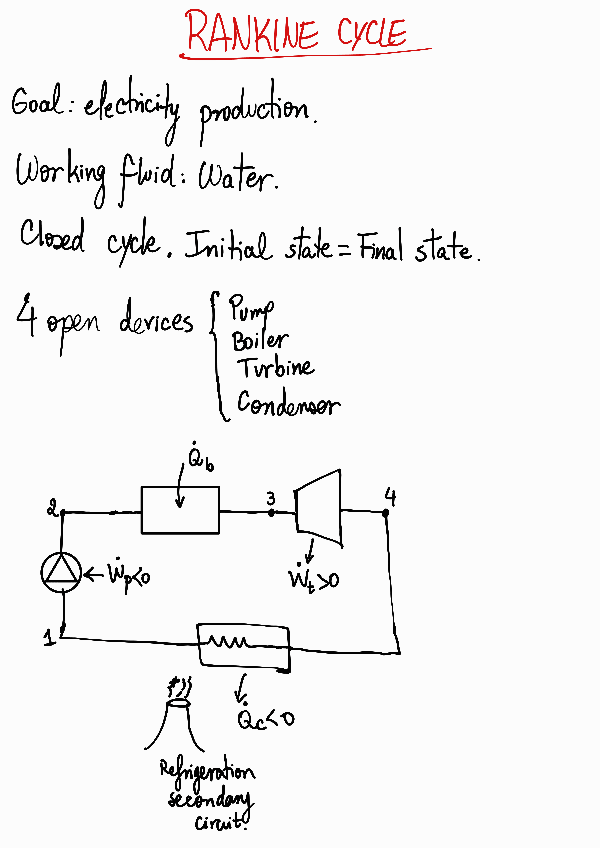 RANKINE CYCLE
Goal: electricity production.
Working fluid: Water.
Closed cycle. Initial state = Final state.
4 open devices { Pump
Boiler
Turbine
Condensor
Q̇b
2
3
4
Ẇp<0
Ẇt>0
1
Q̇c<0
Refrigeration
secondary
circuit.